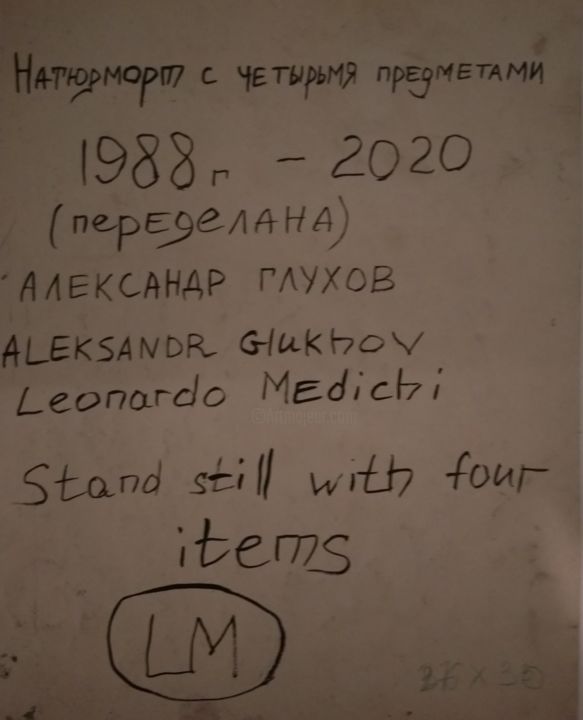 Натюрморт с четырьмя предметами
1988г - 2020
(переделана)
АЛЕКСАНДР ГЛУХОВ
ALEKSANDR Glukhov
Leonardo MEdichi
©Artmajeur.com
Stand still with four
items
LM